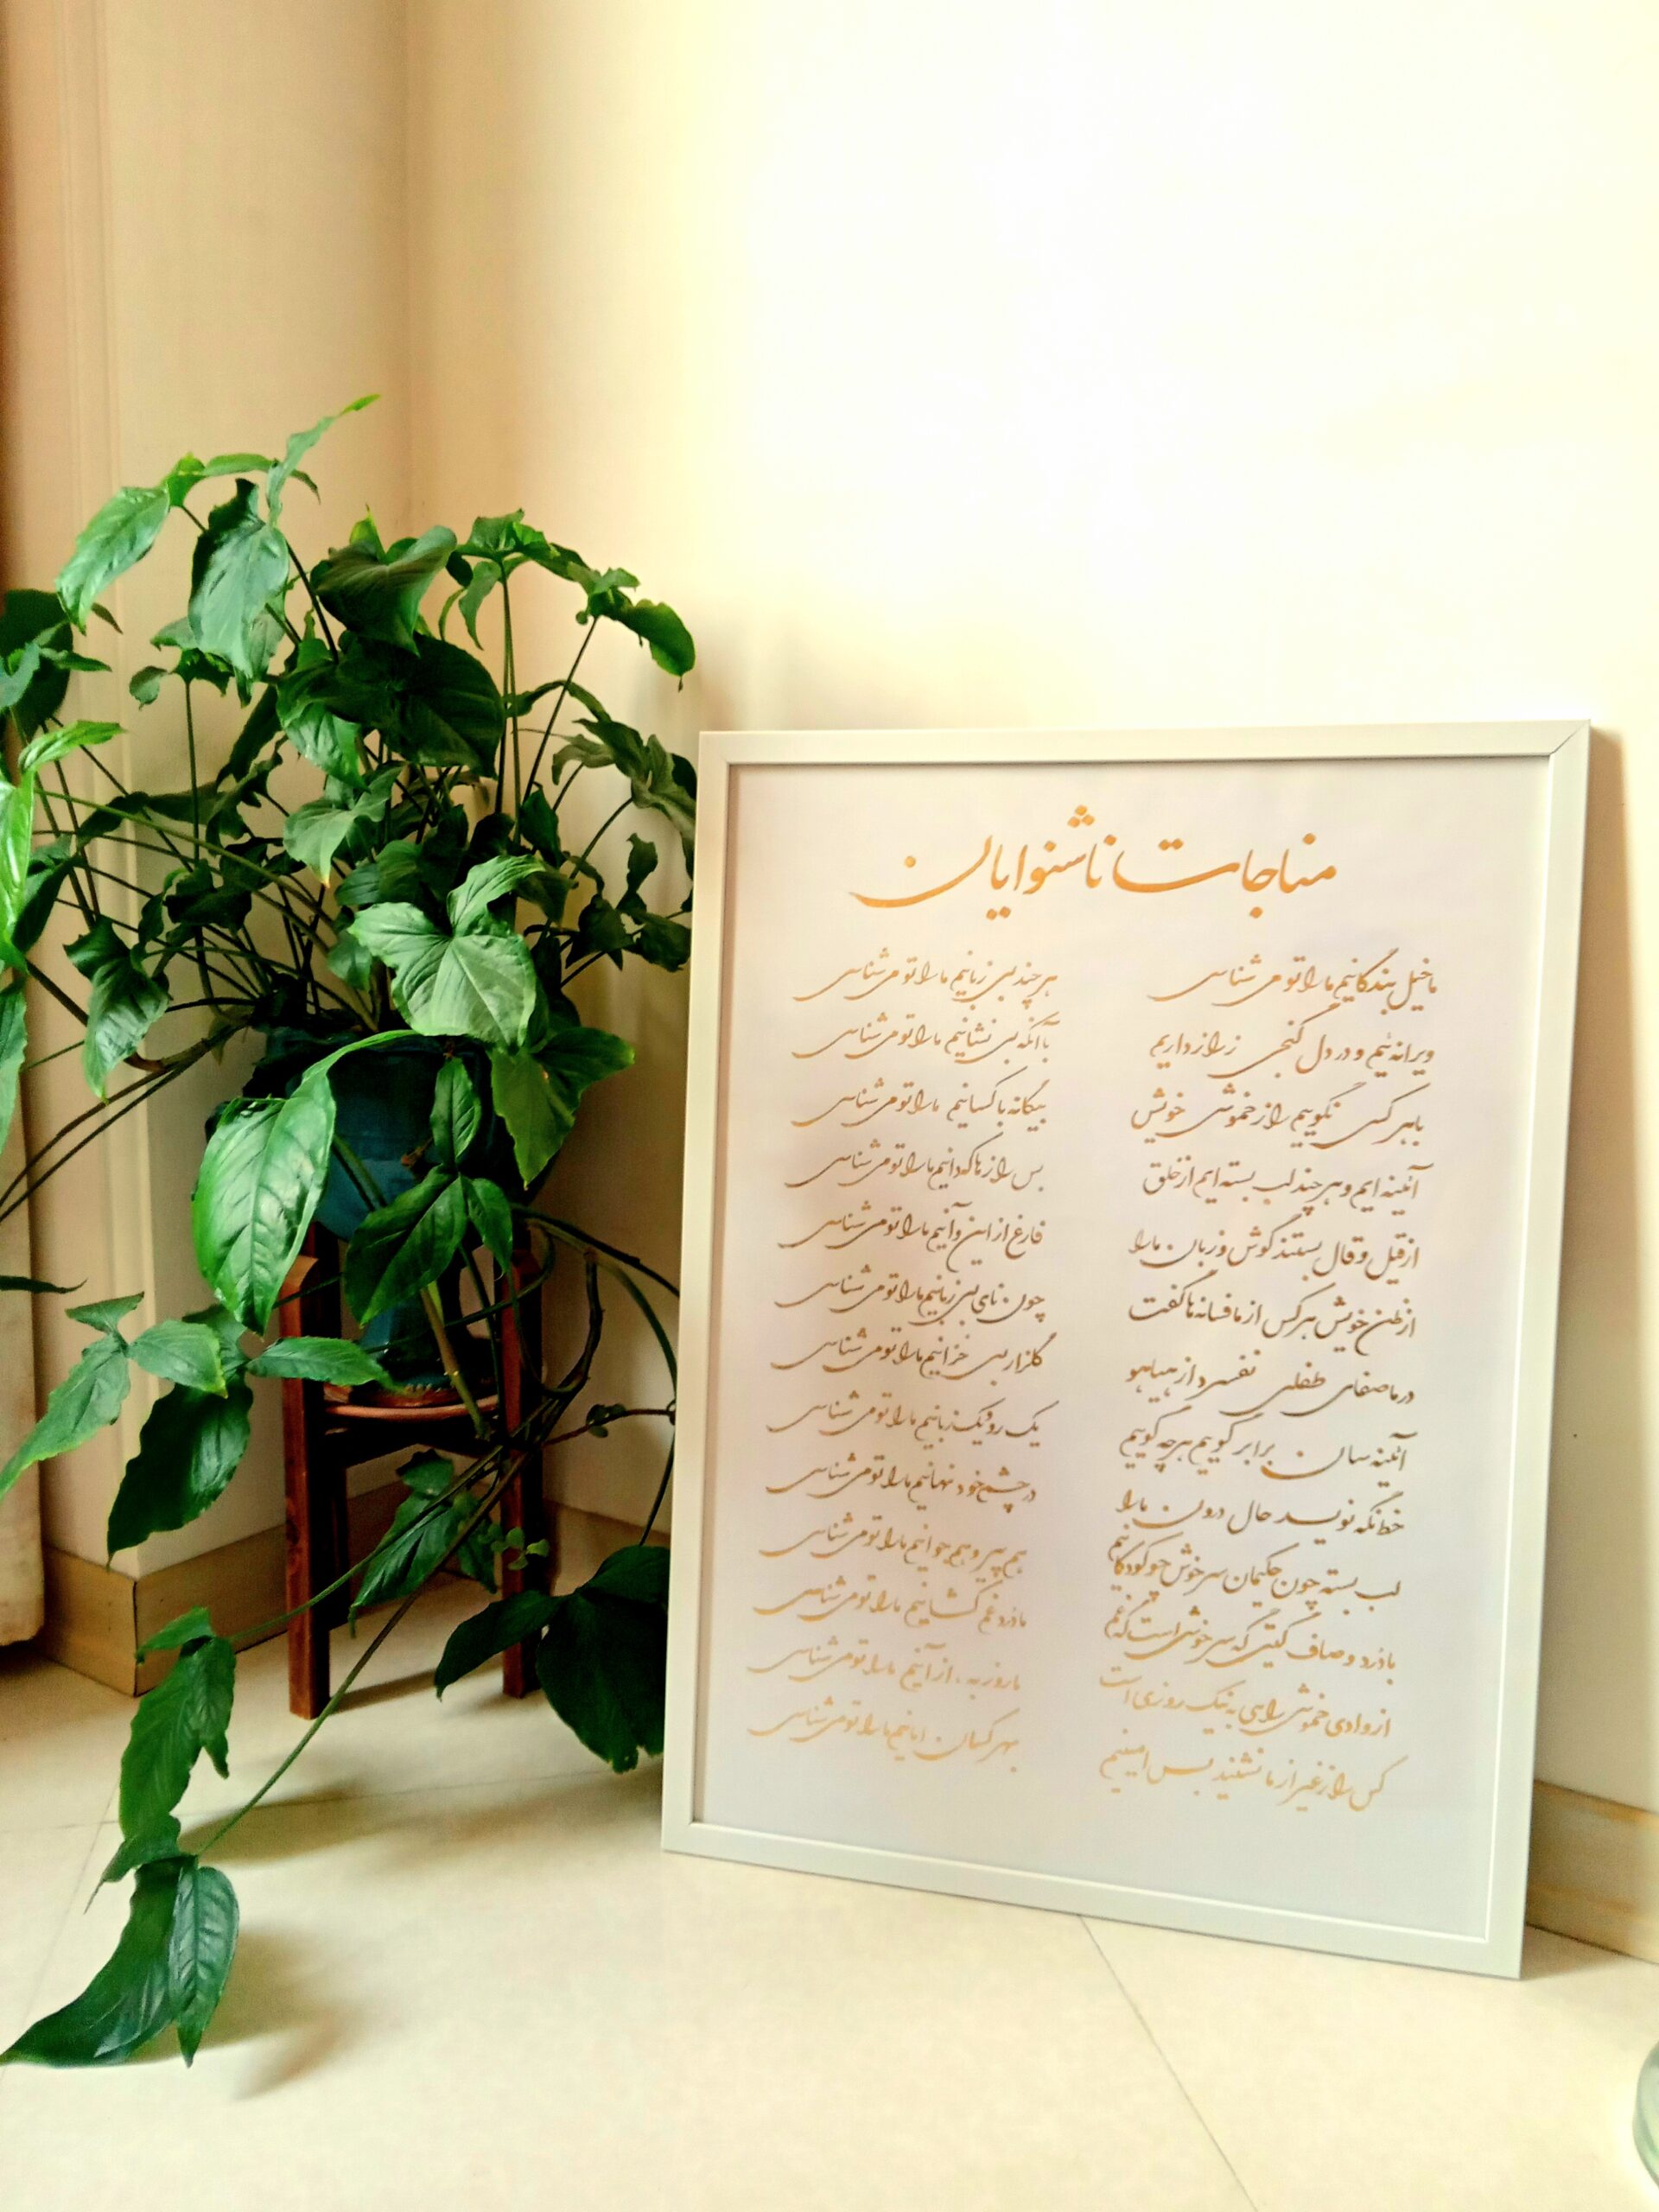 مناجات ناشنوایان
ما خیل بندگانیم ما را تو می‌شناسی
هر چند بی زبانیم ما را تو می‌شناسی
ویرانه‌ئیم و در دل گنجی ز راز داریم
با آنکه بی نشانیم ما را تو می‌شناسی
با هر کسی نگوییم راز خموشی خویش
بیگانه با کسانیم ما را تو می‌شناسی
آئینه‌ایم و هر چند لب بسته‌ایم از خلق
بس رازها که دانیم ما را تو می‌شناسی
از قیل و قال بستند گوش و زبان ما را
فارغ از این و آنیم ما را تو می‌شناسی
از ظن خویش هر کس از ما فسانه‌ها گفت
چون نای بی زبانیم ما را تو می‌شناسی
در ما صفای طفلی نفسرد از هیاهو
گلزار بی خزانیم ما را تو می‌شناسی
آئینه سان برابر گوییم هر چه گوییم
یک رو و یک زبانیم ما را تو می‌شناسی
خط نگه نویسد حال درون ما را
در چشم خود نهانیم ما را تو می‌شناسی
لب بسته چون حکیمان سر خوش چو کودکانیم
هم پیر و هم جوانیم ما را تو می‌شناسی
با درد و صاف گیتی گه سر خوش است گه غم
ما درد غم کشانیم ما را تو می‌شناسی
از وادی خموشی راهی به نیک روزی است
ما روز به از آنیم ما را تو می‌شناسی
کس راز غیر از ما نشنید بس امینیم
بهر کسان امانیم ما را تو می‌شناسی